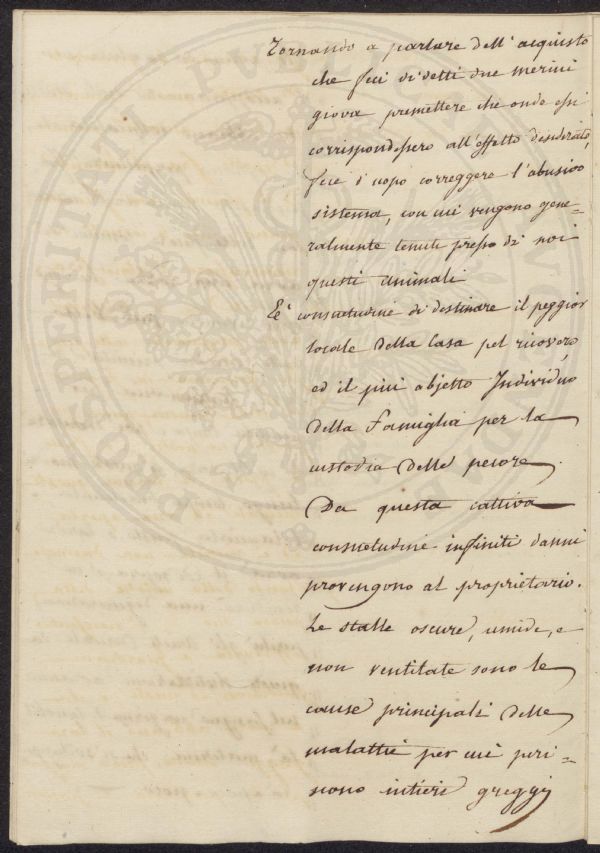 Tornando a parlare dell'acquisto
che feci di detti due merini
giova premettere che onde essi
corrispondessero all'effetto desiderato,
fece d'uopo correggere l'abusivo
sistema, con cui vengono gene=
ralmente tenuti presso di noi
questi animali
E' consuetudine di destinare il peggior
locale della Casa pel ricovero,
ed il più abjetto Individuo
della Famiglia per la
custodia delle pecore.
Da questa cattiva
consuetudine infiniti danni
provengono al proprietario.
Le stalle oscure, umide, e
non ventilate sono le
cause principali delle
malattie per cui peri=
scono intieri greggi